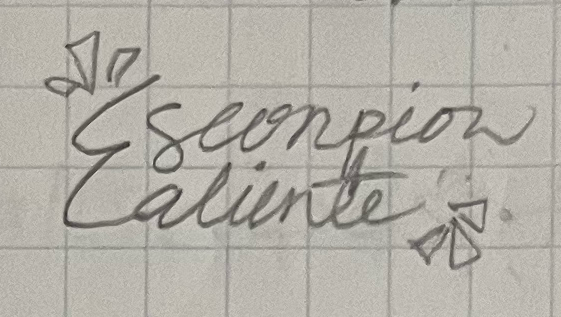 Escorpion
Caliente